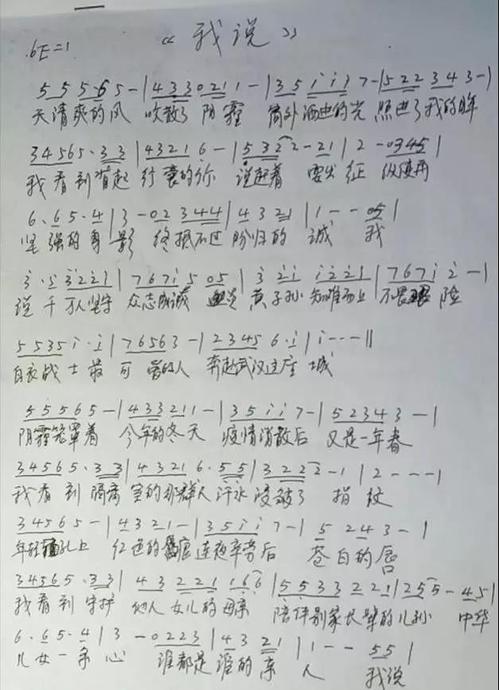 bE=1 《我说》
5 5 5 6 5 - | 4 3 3 0 2 1 1 - | 3 5 i i i 7 - | 5 2 2 3 4 3 - |
天清爽的风 吹散了阴霾 窗外洒进的光 照进了我的眸
3 4 5 6 5 · 3 3 | 4 3 2 1 6 - | 5 3 2 2 - 2 1 | 2 - 0 3 4 5 |
我看到背起行囊的你 说起着要出征 纵使再
6 · 6 5 · 4 | 3 - 0 2 3 4 4 | 4 3 2 1 | 1 - - 0 5 |
坚强的身影 终抵不过盼归的诚 我
3 · 5 3 2 2 1 | 7 6 7 i 5 0 5 | 3 2 i i 2 2 1 | 7 6 7 i 2 - |
说千万人坚守 众志成诚 炎黄子孙知难而上 不畏艰险
5 5 3 5 i · i | 7 6 5 6 3 - | 2 3 4 5 6 · i | i - - - ||
白衣战士最可爱的人 奔赴武汉这座城
5 5 5 6 5 - | 4 3 3 2 1 1 - | 3 5 i i 7 - | 5 2 3 4 3 - |
阴霾笼罩着 今年的冬天 疫情消散后 又是一年春
3 4 5 6 5 · 3 3 | 4 3 2 1 6 · 5 5 | 3 2 2 2 - 1 | 2 - - - |
我看到隔离室的那群人汗水浸破了指纹
3 4 5 6 5 - | 4 3 2 1 - | 3 5 i i 7 - | 5 2 4 3 - |
年轻面孔上 红色的 连夜辛劳后 苍白的唇
3 4 5 6 5 · 3 3 | 4 3 2 2 1 1 6 6 | 5 5 3 3 2 2 1 | 2 5 5 - 4 5 |
我看到守护他人女儿的母亲 陪伴别家长辈的儿孙 中华
6 · 6 5 · 4 | 3 - 0 2 2 3 | 4 3 2 1 | 1 - - 5 5 |
儿女一条心 谁都是谁的亲人 我说